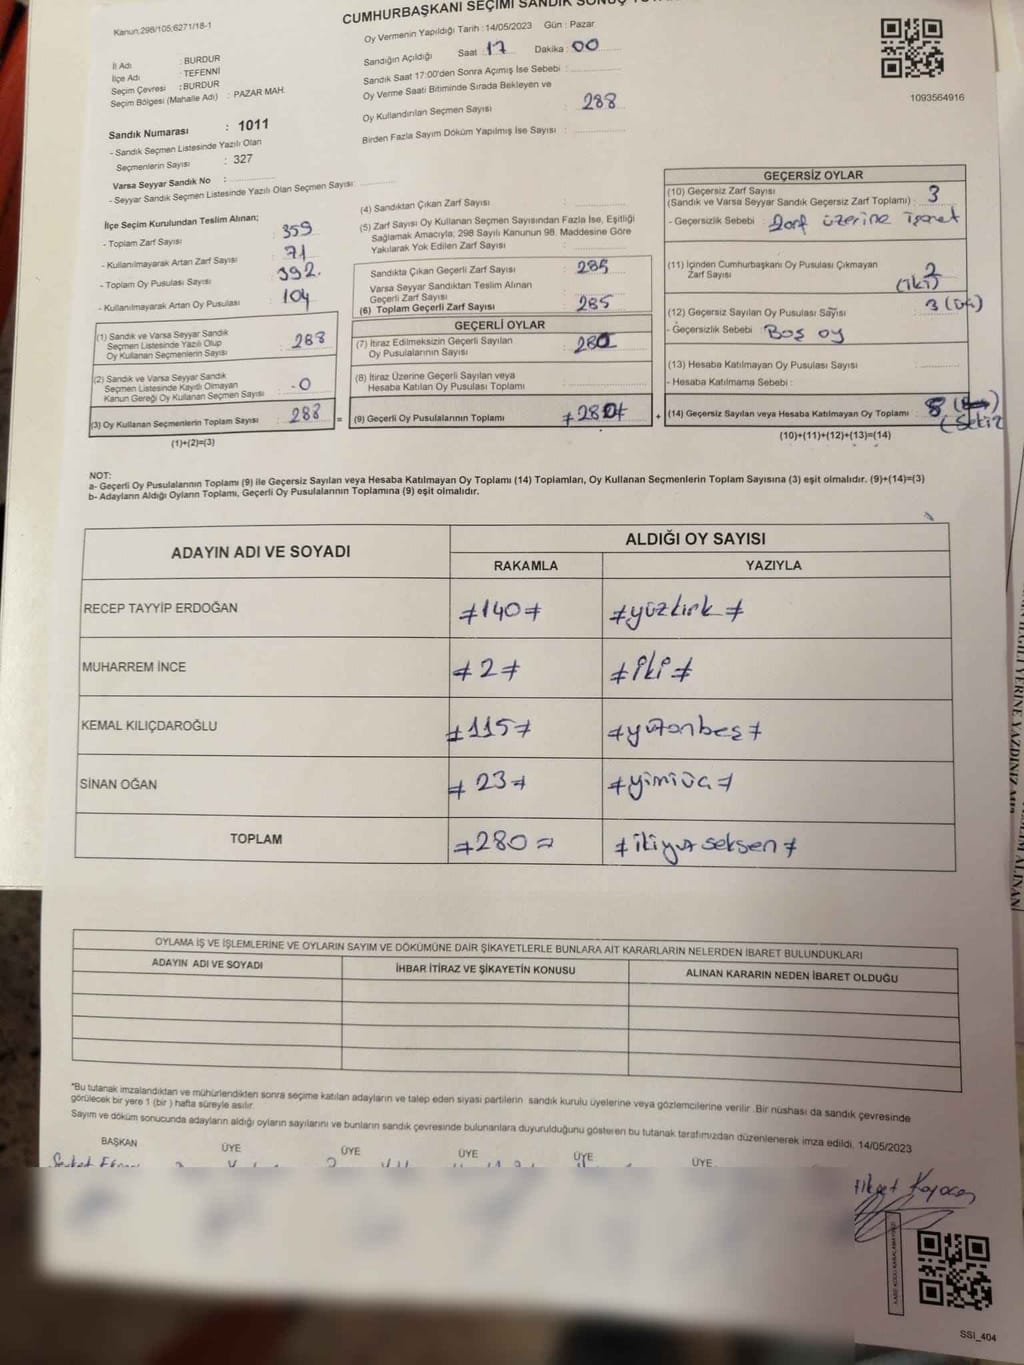 Kanun:298/105;6271/18-1
CUMHURBAŞKANI SEÇİMİ SANDIK SONUÇ
İl Adı : BURDUR
İlçe Adı : TEFENNİ
Seçim Çevresi : BURDUR
Seçim Bölgesi (Mahalle Adı) : PAZAR MAH.
Sandık Numarası : 1011
- Sandık Seçmen Listesinde Yazılı Olan
Seçmenlerin Sayısı : 327
Varsa Seyyar Sandık No :
- Seyyar Sandık Seçmen Listesinde Yazılı Olan Seçmen Sayısı:
Oy Vermenin Yapıldığı Tarih : 14/05/2023 Gün : Pazar
Sandığın Açıldığı Saat : 17 Dakika : 00
Sandık Saat 17:00'den Sonra Açımış İse Sebebi :
Oy Verme Saati Bitiminde Sırada Bekleyen ve
Oy Kullandırılan Seçmen Sayısı : 288
Birden Fazla Sayım Döküm Yapılmış İse Sayısı :
1093564916
İlçe Seçim Kurulundan Teslim Alınan;
- Toplam Zarf Sayısı : 359
- Kullanılmayarak Artan Zarf Sayısı : 71
- Toplam Oy Pusulası Sayısı : 392.
- Kullanılmayarak Artan Oy Pusulası : 104
(1) Sandık ve Varsa Seyyar Sandık
Seçmen Listesinde Yazılı Olup
Oy Kullanan Seçmenlerin Sayısı : 288
(2) Sandık ve Varsa Seyyar Sandık
Seçmen Listesinde Kayıtlı Olmayan
Kanun Gereği Oy Kullanan Seçmen Sayısı : 0
(3) Oy Kullanan Seçmenlerin Toplam Sayısı : 288 =
(1)+(2)=(3)
(4) Sandıktan Çıkan Zarf Sayısı :
(5) Zarf Sayısı Oy Kullanan Seçmen Sayısından Fazla İse, Eşitliği
Sağlamak Amacıyla; 298 Sayılı Kanunun 98. Maddesine Göre
Yakılarak Yok Edilen Zarf Sayısı :
Sandıkta Çıkan Geçerli Zarf Sayısı : 285
Varsa Seyyar Sandıktan Teslim Alınan
Geçerli Zarf Sayısı :
(6) Toplam Geçerli Zarf Sayısı : 285
GEÇERLİ OYLAR
(7) İtiraz Edilmeksizin Geçerli Sayılan
Oy Pusulalarının Sayısı : 280
(8) İtiraz Üzerine Geçerli Sayılan veya
Hesaba Katılan Oy Pusulası Toplamı :
(9) Geçerli Oy Pusulalarının Toplamı : ≠280≠ +
GEÇERSİZ OYLAR
(10) Geçersiz Zarf Sayısı
(Sandık ve Varsa Seyyar Sandık Geçersiz Zarf Toplamı) : 3
- Geçersizlik Sebebi : Zarf üzerine işaret
(11) İçinden Cumhurbaşkanı Oy Pusulası Çıkmayan
Zarf Sayısı : 2
(iki)
(12) Geçersiz Sayılan Oy Pusulası Sayısı : 3 (üç)
- Geçersizlik Sebebi : Boş oy
(13) Hesaba Katılmayan Oy Pusulası Sayısı :
- Hesaba Katılmama Sebebi :
(14) Geçersiz Sayılan veya Hesaba Katılmayan Oy Toplamı : 8
(Sekiz
(10)+(11)+(12)+(13)=(14)
NOT:
a- Geçerli Oy Pusulalarının Toplamı (9) ile Geçersiz Sayılan veya Hesaba Katılmayan Oy Toplamı (14) Toplamları, Oy Kullanan Seçmenlerin Toplam Sayısına (3) eşit olmalıdır. (9)+(14)=(3)
b- Adayların Aldığı Oyların Toplamı, Geçerli Oy Pusulalarının Toplamına (9) eşit olmalıdır.
ADAYIN ADI VE SOYADI
ALDIĞI OY SAYISI
RAKAMLA YAZIYLA
RECEP TAYYİP ERDOĞAN ≠140≠ ≠yüzkırk≠
MUHARREM İNCE ≠2≠ ≠iki≠
KEMAL KILIÇDAROĞLU ≠115≠ ≠yüzonbeş≠
SİNAN OĞAN ≠23≠ ≠yimiüç≠
TOPLAM ≠280≠ ≠ikiyüz seksen≠
OYLAMA İŞ VE İŞLEMLERİNE VE OYLARIN SAYIM VE DÖKÜMÜNE DAİR ŞİKAYETLERLE BUNLARA AİT KARARLARIN NELERDEN İBARET BULUNDUKLARI
ADAYIN ADI VE SOYADI İHBAR İTİRAZ VE ŞİKAYETİN KONUSU ALINAN KARARIN NEDEN İBARET OLDUĞU
*Bu tutanak imzalandıktan ve mühürlendikten sonra seçime katılan adayların ve talep eden siyasi partilerin sandık kurulu üyelerine veya gözlemcilerine verilir .Bir nüshası da sandık çevresinde
görülecek bir yere 1 (bir ) hafta süreyle asılır.
Sayım ve döküm sonucunda adayların aldığı oyların sayılarını ve bunların sandık çevresinde bulunanlara duyurulduğunu gösteren bu tutanak tarafımızdan düzenlenerek imza edildi. 14/05/2023
BAŞKAN ÜYE ÜYE ÜYE ÜYE ÜYE
SSI_404